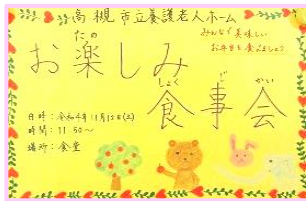 高槻市立養護老人ホーム
みんなで美味しい
お弁当を食べましょう
お楽しみ
たの
食事会
しょく じ かい
日時:令和4年11月12日(土)
時間:11:50〜
場所:食堂